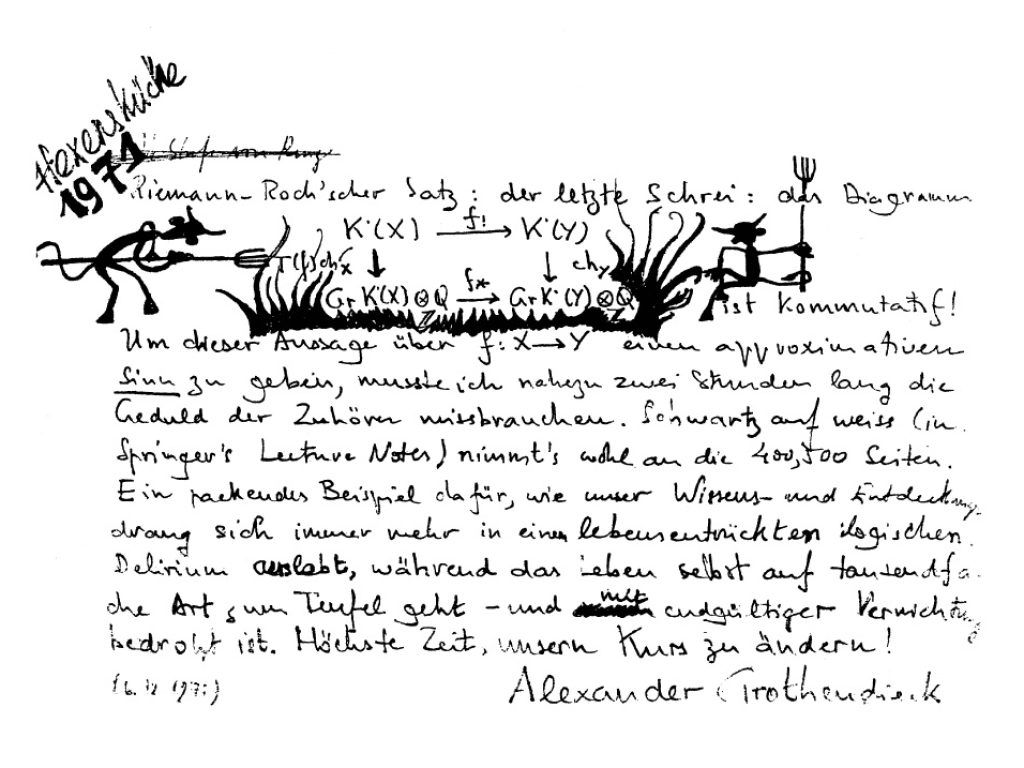 Hexenküche
1971
Riemann-Roch'scher Satz: der letzte Schrei: das Diagramm
K˙(X) f! → K˙(Y)
T(f)chX ↓ ↓ chY
Gr K˙(X) ⊗ℤ Q f* → Gr K˙(Y) ⊗ℤ Q
ist kommutatif!
Um dieser Aussage über f: X → Y einen approximativen
Sinn zu geben, musste ich nahezu zwei Stunden lang die
Geduld der Zuhörer missbrauchen. Schwartz auf weiss (in
Springer's Lecture Notes) nimmt's wohl an die 400, 500 Seiten.
Ein packendes Beispiel dafür, wie unser Wissens- und Entdeckungs-
drang sich immer mehr in einem lebensentrückten logischen
Delirium auslebt, während das Leben selbst auf tausendfa-
che Art zum Teufel geht - und mit endgültiger Vernichtung
bedroht ist. Höchste Zeit, unsern Kurs zu ändern!
Alexander Grothendieck